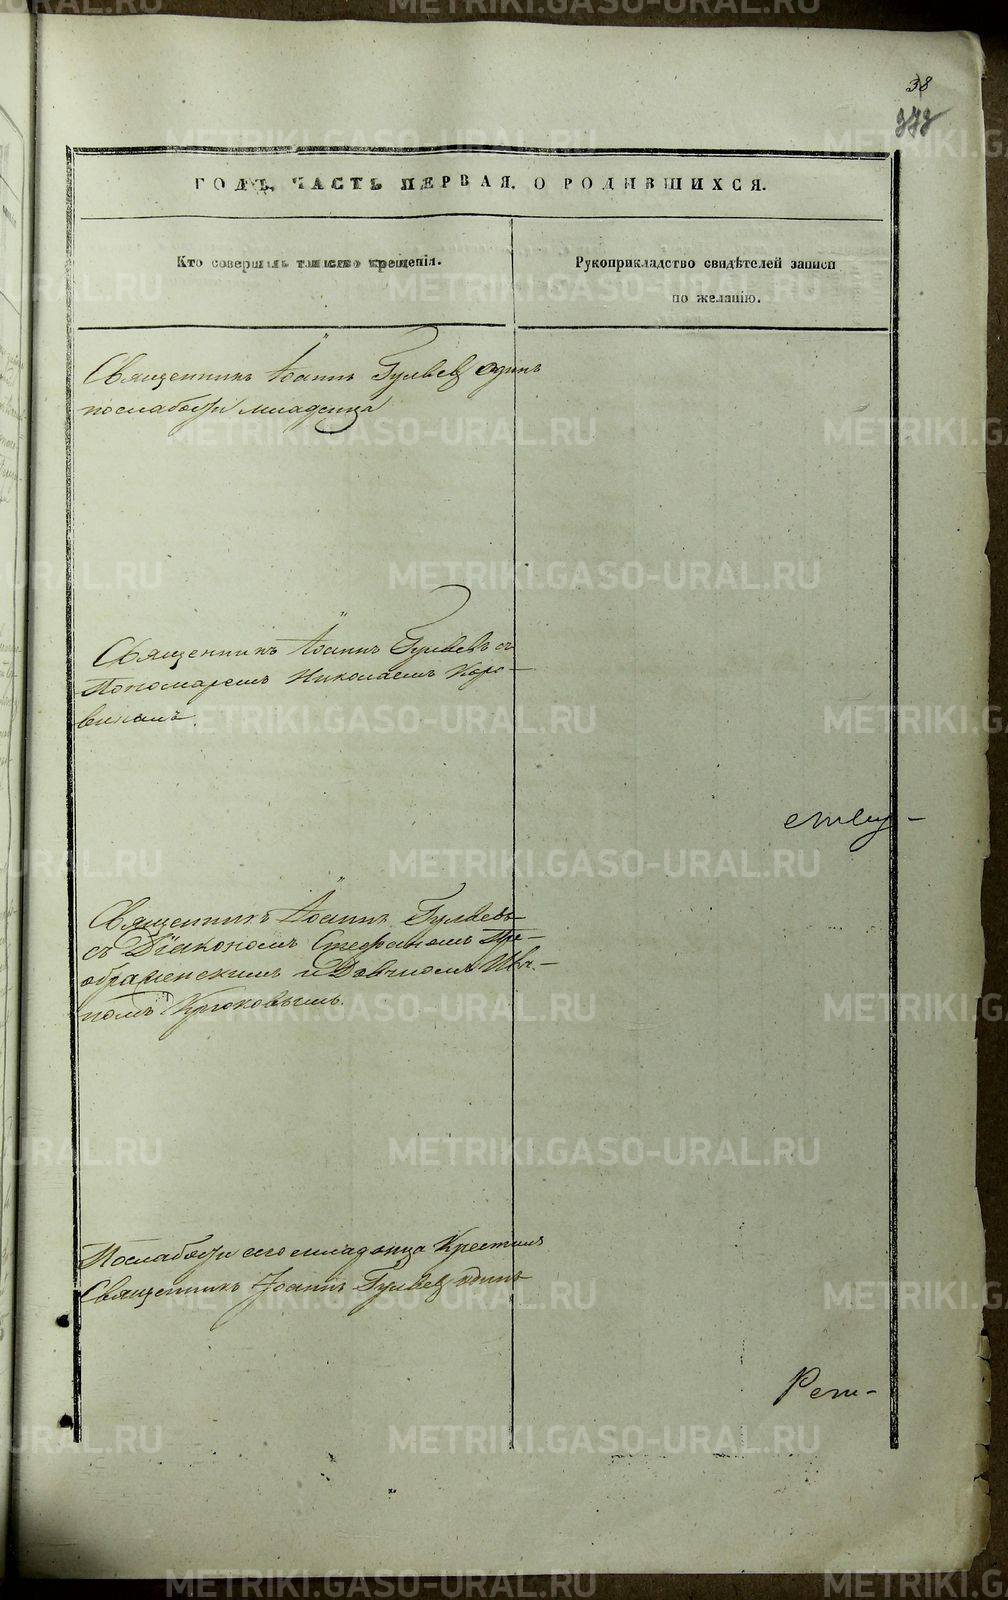 38
377
ГОДЪ, ЧАСТЬ ПЕРВАЯ, О РОДИВШИХСЯ.
Кто совершалъ таинство крещенія.
Рукоприкладство свидѣтелей записи
по желанію.
Священникъ Іоаннъ Гуляевъ одинъ
послабости младенца
Священникъ Іоаннъ Гуляевъ съ
Пономаремъ Николаемъ Коро-
винымъ.
ству-
Священникъ Іоаннъ Гуляевъ
съ Діакономъ Стефаномъ Пре-
ображенскимъ и Дьячкомъ Ива-
номъ Крюковымъ.
Послабости сего младенца Крестилъ
Священникъ Іоаннъ Гуляевъ одинъ
METRIKI.GASO-URAL.RU